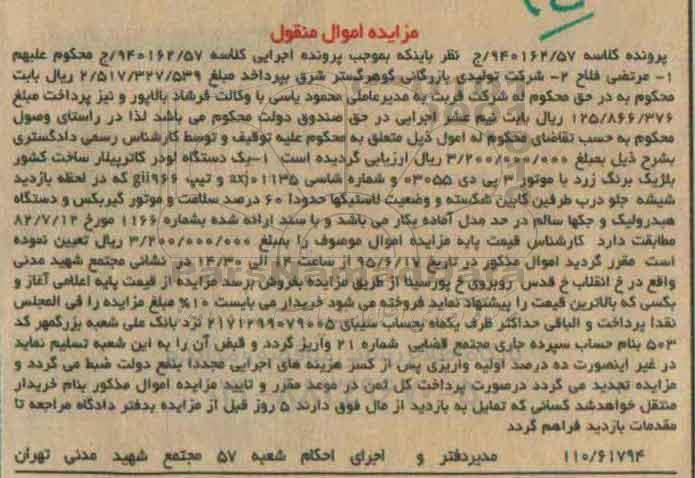 مزایده اموال منقول
پرونده کلاسه ۹۴۰۱۶۲/۵۷/ج نظر باینکه بموجب پرونده اجرایی کلاسه ۹۴۰۱۶۲/۵۷/ج محکوم علیهم
۱- مرتضی فلاح ۲- شرکت تولیدی بازرگانی گوهرگستر شرق بپرداخد مبلغ ۲/۵۱۷/۳۲۷/۵۳۹ ریال بابت
محکوم به در حق محکوم له شرکت فربت به مدیرعاملی محمود یاسی با وکالت فرشاد بالاپور و نیز پرداخت مبلغ
۱۲۵/۸۶۶/۳۷۶ ریال بابت نیم عشر اجرایی در حق صندوق دولت محکوم می باشد لذا در راستای وصول
محکوم به حسب تقاضای محکوم له اموال ذیل متعلق به محکوم علیه توقیف و توسط کارشناس رسمی دادگستری
بشرح ذیل بمبلغ ۳/۲۰۰/۰۰۰/۰۰۰ ریال ارزیابی گردیده است ۱-یک دستگاه لودر کاترپیلار ساخت کشور
بلژیک برنگ زرد با موتور ۳ پی دی ۰۳۰۵۵ و شماره شاسی axj۰۱۱۳۵ و تیپ gii۹۶۶ که در لحظه بازدید
شیشه جلو درب طرفین کابین شکسته و وضعیت لاستیکها حدودا ۶۰ درصد سلامت و موتور گیربکس و دستگاه
هیدرولیک و جکها سالم در حد مدل آماده بکار می باشد و با سند ارائه شده بشماره ۱۱۶۶ مورخ ۸۲/۷/۱۲
مطابقت دارد کارشناس قیمت پایه مزایده اموال موصوف را بمبلغ ۳/۲۰۰/۰۰۰/۰۰۰ ریال تعیین نموده
است مقرر گردید اموال مذکور در تاریخ ۹۵/۶/۱۷ از ساعت ۱۴ الی ۱۴/۳۰ در نشانی مجتمع شهید مدنی
واقع در خ انقلاب خ قدس روبروی خ پورسینا از طریق مزایده بفروش برسد مزایده از قیمت پایه اعلامی آغاز و
بکسی که بالاترین قیمت را پیشنهاد نماید فروخته می شود خریدار می بایست ۱۰% مبلغ مزایده را فی المجلس
نقدا پرداخت و الباقی حداکثر ظرف یکماه بحساب سیبای ۲۱۷۱۲۹۹۰۷۹۰۰۵ نزد بانک ملی شعبه بزرگمهر کد
۵۰۳ بنام حساب سپرده جاری مجتمع قضایی شماره ۲۱ واریز گردد و قبض آن را به این شعبه تسلیم نماید
در غیر اینصورت ده درصد اولیه واریزی پس از کسر هزینه های اجرایی مجددا بنفع دولت ضبط می گردد و
مزایده تجدید می گردد درصورت پرداخت کل ثمن در موعد مقرر و تایید مزایده اموال مذکور بنام خریدار
منتقل خواهدشد کسانی که تمایل به بازدید از مال فوق دارند ۵ روز قبل از مزایده بدفتر دادگاه مراجعه تا
مقدمات بازدید فراهم گردد
۱۱۰/۶۱۷۹۴ مدیردفتر و اجرای احکام شعبه ۵۷ مجتمع شهید مدنی تهران
ParsNamadData